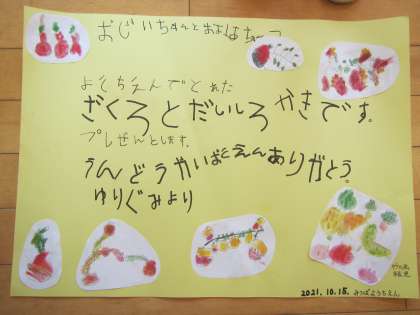 おじいちゃんと
ようちえんでとれた
ざくろとだいしろ かきです。
プレぜんとします。
うんどうかいおうえんありがとう。
ゆりぐみより
2021.10.15. みつばようちえん